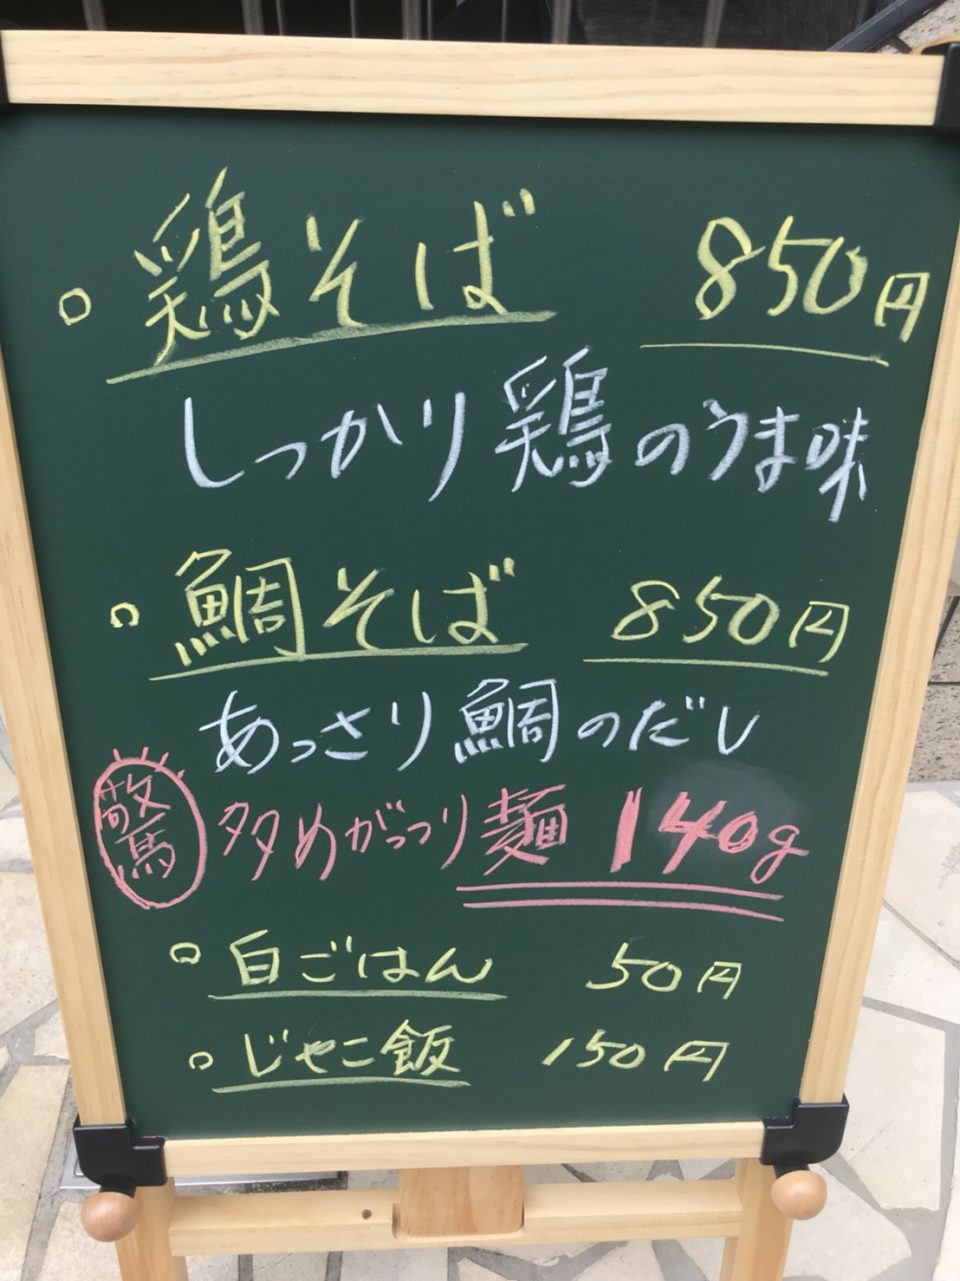 ○ 鶏そば 850円
しっかり鶏のうま味
○ 鯛そば 850円
あっさり鯛のだし
驚 多めがっつり麺 140g
○ 白ごはん 50円
○ じゃこ飯 150円